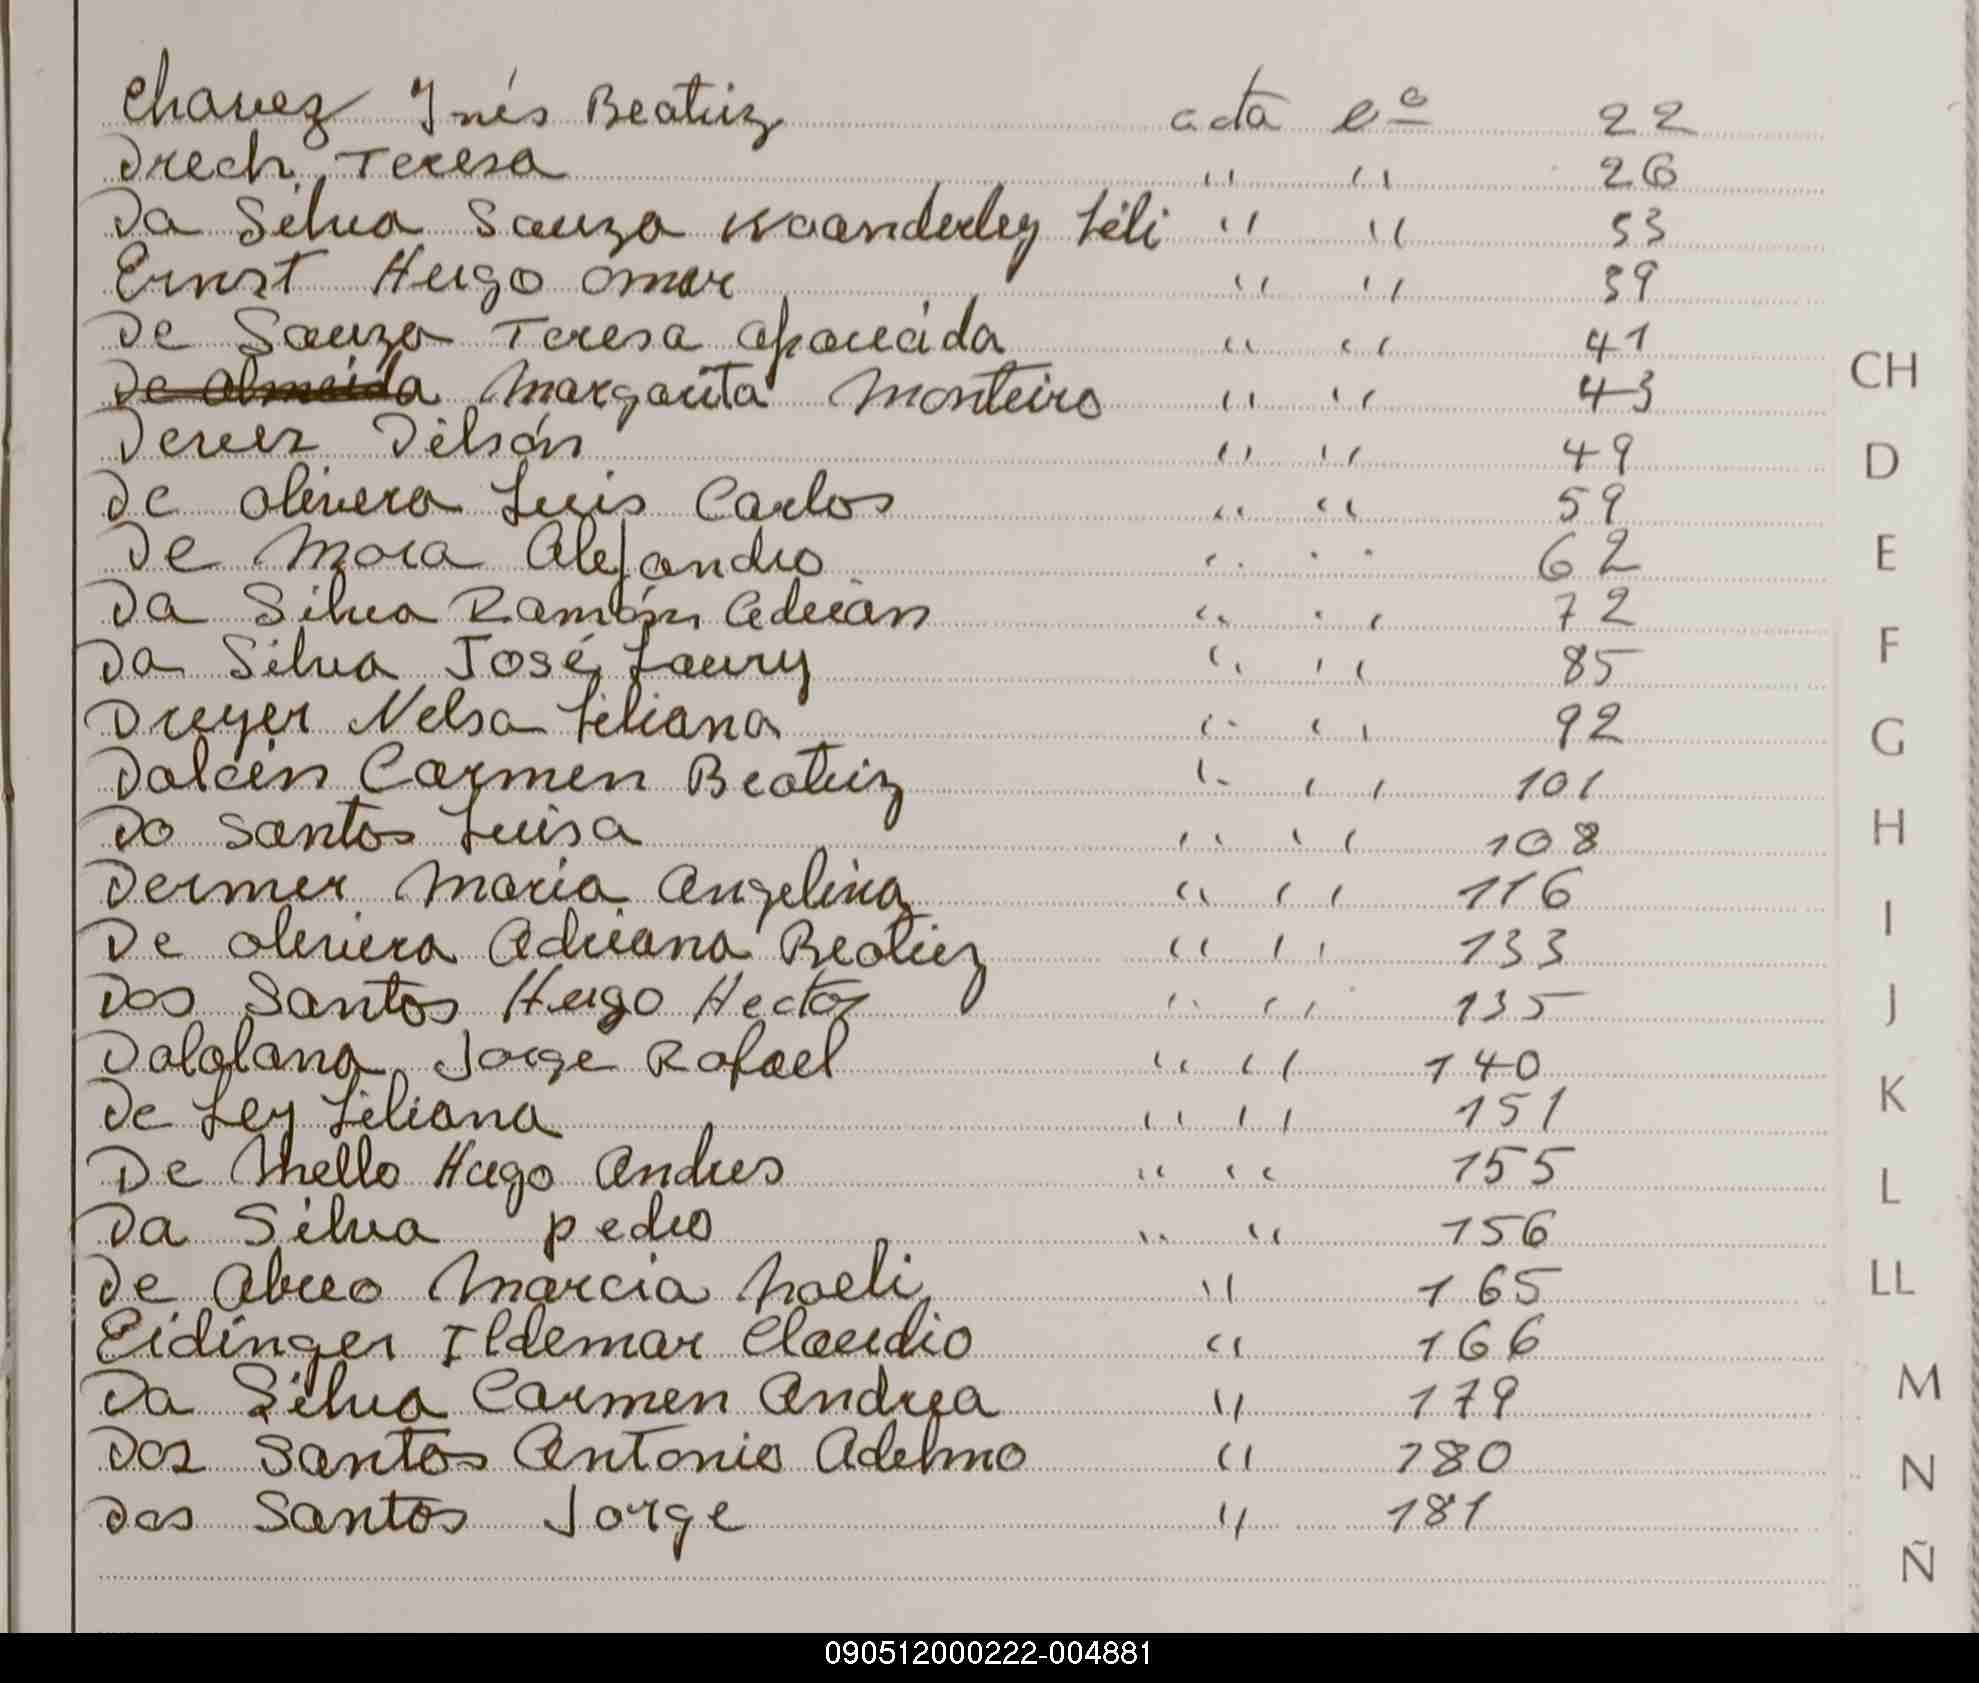 Chavez Inés Beatriz acta eª 22
Drech Teresa " " 26
Da Silva Souza Waanderley Lili " " 33
Ernst Hugo Omar " " 39
De Souza Teresa Aparecida " " 41
De Almeida Margarita Monteiro " " 43
Derer Dilsón " " 49
De Olivera Luis Carlos " " 59
De Mora Alejandro " " 62
Da Silva Ramón Adrián " " 72
Da Silva José Laury " " 85
Dreyer Nelsa Liliana " " 92
Dalcin Carmen Beatriz " " 101
Do Santos Luisa " " 108
Dermer Maria Angelina " " 116
De Olivera Adriana Beatriz " " 133
Dos Santos Hugo Hector " " 135
Dalolana Jorge Rafael " " 140
De Ley Liliana " " 151
De Mello Hugo Andres " " 155
Da Silva Pedro " " 156
De Abreo Marcia Noeli " 165
Eidinger Ildemar Claudio " 166
Da Silva Carmen Andrea " 179
Dos Santos Antonio Adelmo " 180
Dos Santos Jorge " 181
CH
D
E
F
G
H
I
J
K
L
LL
M
N
Ñ
090512000222-004881